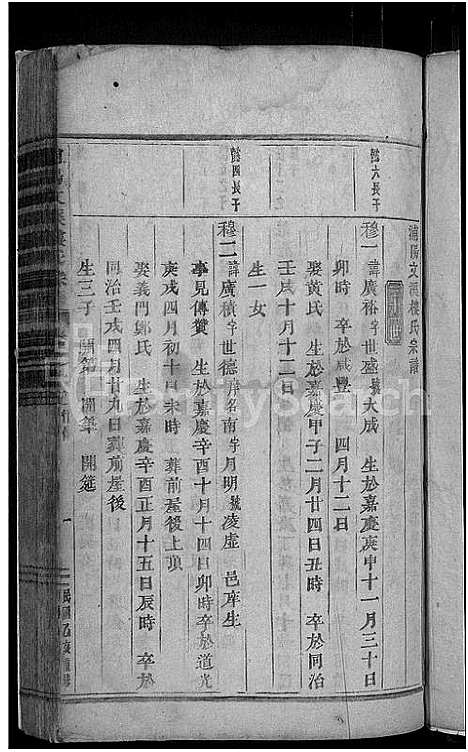 浦陽文溪樓氏宗譜
德六長子
穆一 諱廣裕字世盛號大成 生於嘉慶庚申十一月三十日
卯時 卒於咸豐 四月十二日
娶黃氏 生於嘉慶甲子二月廿四日丑時 卒於同治
壬戌十月十二日
生一女
德四長子
穆二 諱廣積字世德庠名南字月明號凌虛 邑庠生
事見傳贊 生於嘉慶辛酉十月十四日卯時卒於道光
庚戌四月初十日未時 葬前屋後上塬
娶義門鄭氏 生於嘉慶辛酉正月十五日辰時 卒於
同治壬戌四月廿九日葬前屋後
生三子 開第 開筆 開筵
一
民國乙亥重修
FamilySearch